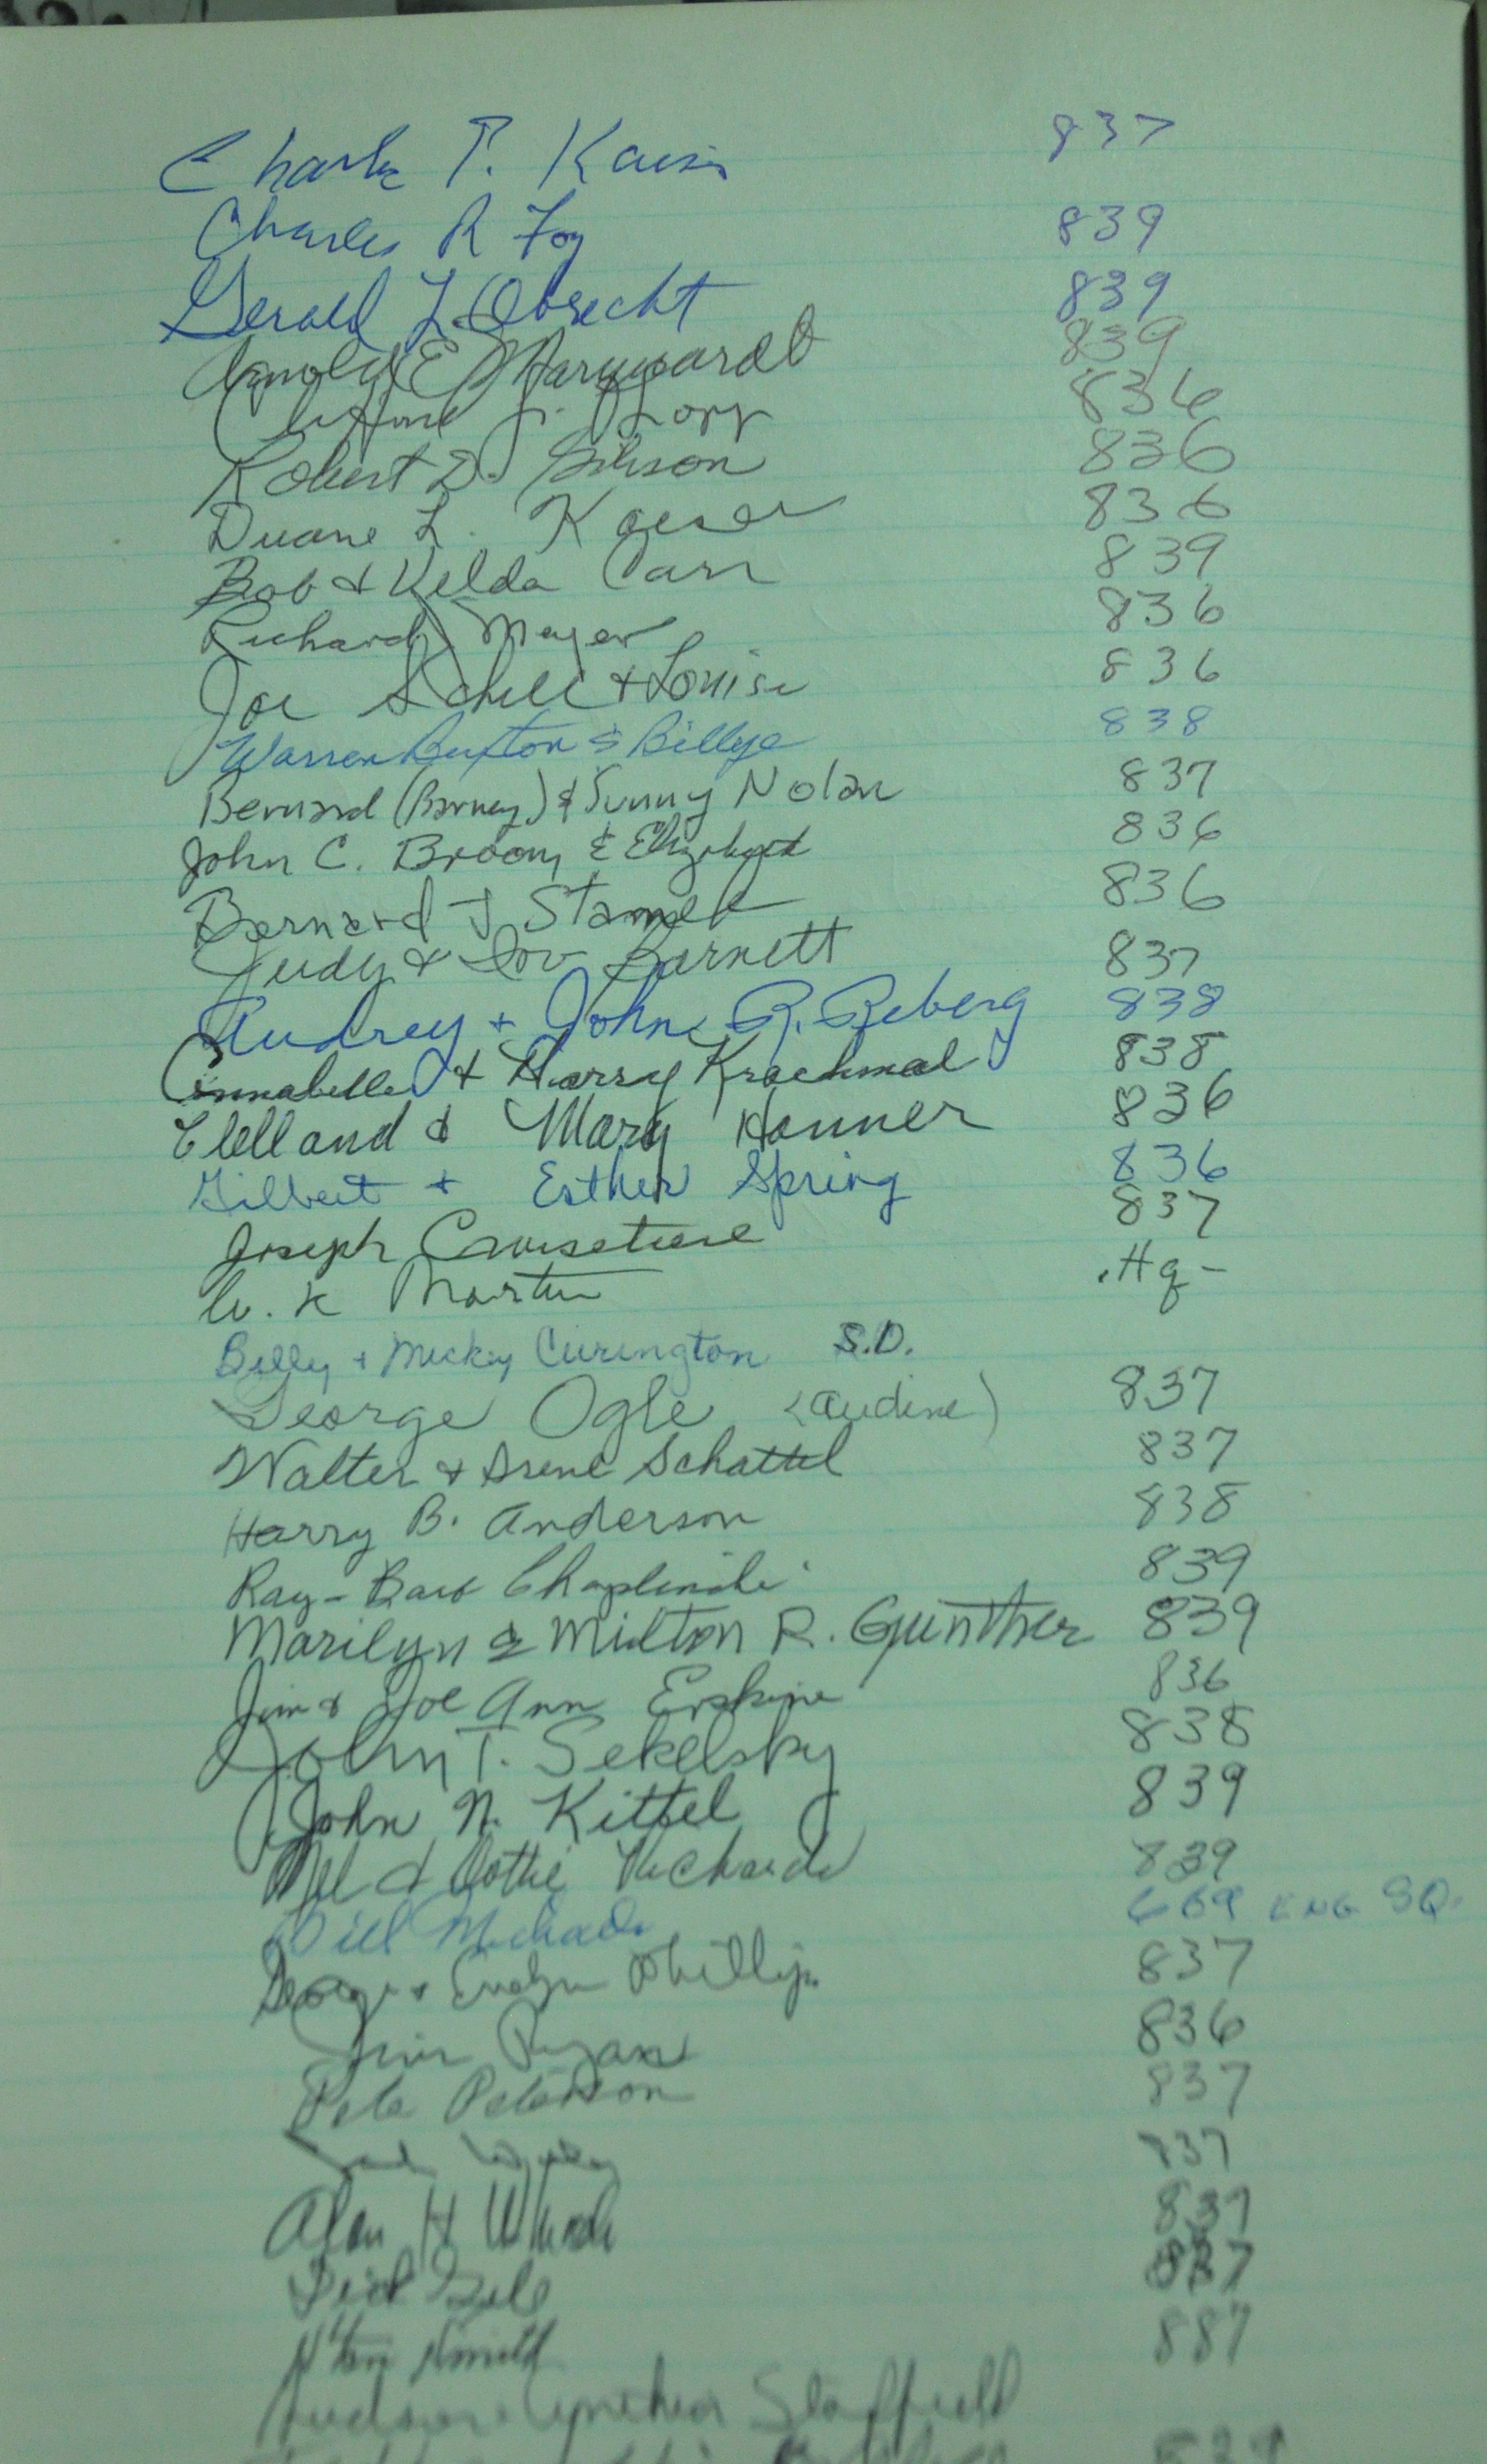 Charles P. Kaiser 837
Charles R Foy 839
Gerald L. Obrecht 839
Arnold E Marquardt 839
Clifford J. 836
Robert D. Gibson 836
Duane L. Kaeser 836
Bob & Velda Carr 839
Richard Mayer 836
Joe Schill + Louise 836
Warren Buxton & Billye 838
Bernard (Barney) & Sunny Nolan 837
John C. Broom & Elizabeth 836
Bernard J Stamek 836
Judy & Lou Barnett 837
Audrey + John R. Reberg 838
Annabelle + Harry Krachmal 838
Clelland & Mary Honner 836
Gilbert + Esther Spring 836
Joseph 837
W. K Martin Hq-
Billy + Mickey Curington S.D.
George Ogle (Audine) 837
Walter + Irene Schattel 837
Harry B. Anderson 838
Ray - Barb 839
Marilyn & Milton R. Gunther 839
Jim & Joe Ann Erskine 836
John T. Sekelsky 838
John N. Kittel 839
Mel & Dottie Richards 839
Bill ENG SQ.
George + Evelyn Phillips 837
Jim Ryan 836
Pete Peterson 837
837
Alan H 837
Dick 837
887
Cynthia Staffield